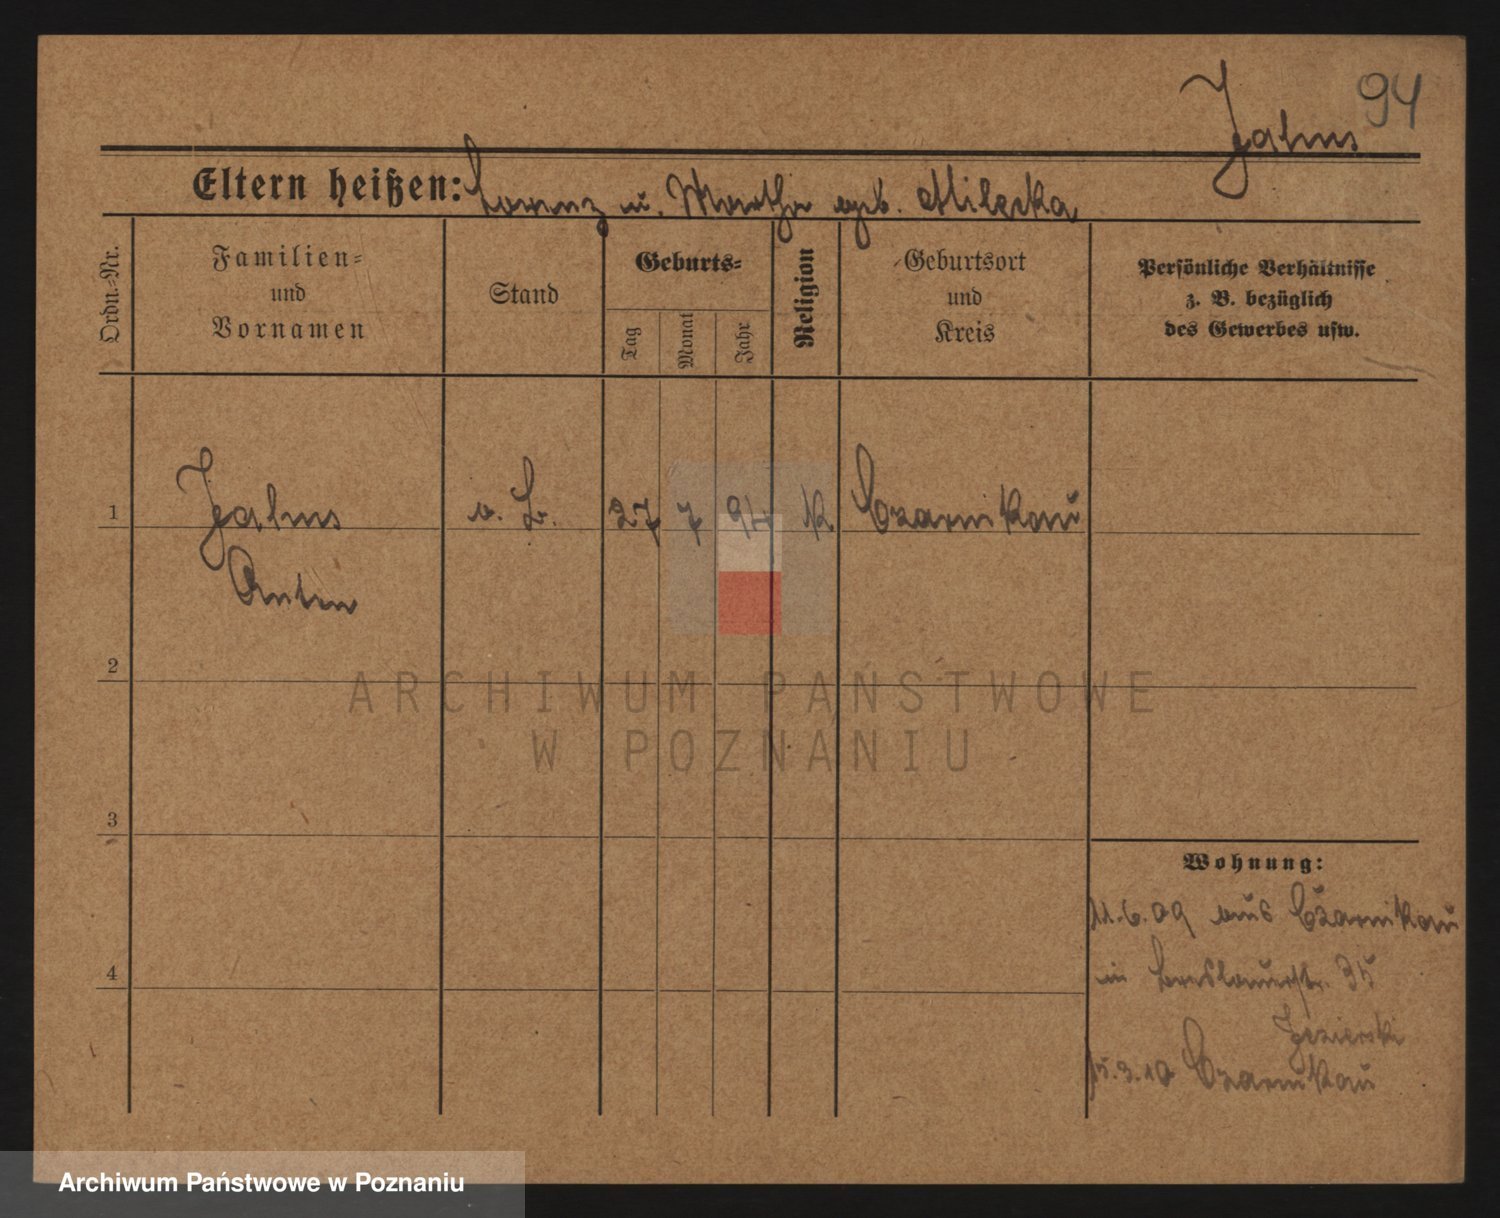 94
Jahns
Eltern heißen: Lorenz u. Martha geb. Mileska
Ordn.-Nr.
Familien-
und
Vornamen
Stand
Geburts-
Tag
Monat
Jahr
Religion
Geburtsort
und
Kreis
Persönliche Verhältnisse
z. B. bezüglich
des Gewerbes usw.
1 Jahns 27 7 94 K. Czarnikau
Anton
2
ARCHIWUM PAŃSTWOWE
W POZNANIU
3
Wohnung:
11.6.09 aus Czarnikau
4
in Breslauerstr. 35
Jezierski
15.3.10 Czarnikau
Archiwum Państwowe w Poznaniu